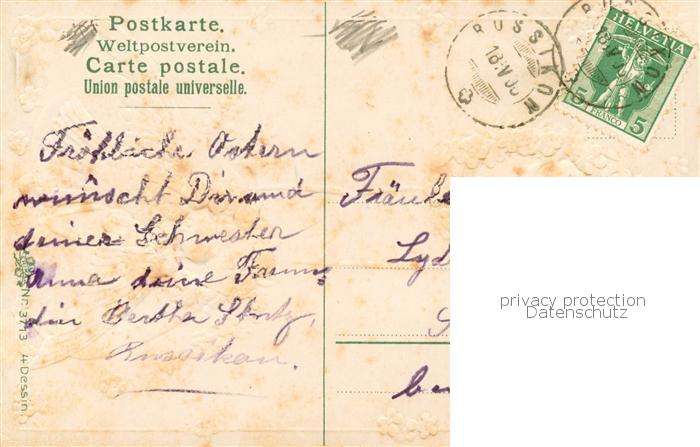 Postkarte.
Weltpostverein.
Carte postale.
Union postale universelle.
RUSSIKON
18.V
RUSSIKON
HELVETIA
5 FRANCO 5
Fröhliche Ostern
wünscht Dir und
deiner Schwester
Anna deine Freun-
din Bertha
Russikon.
Nr. 3713 4 Dessin
Fräule
Lyd
be
privacy protection
Datenschutz